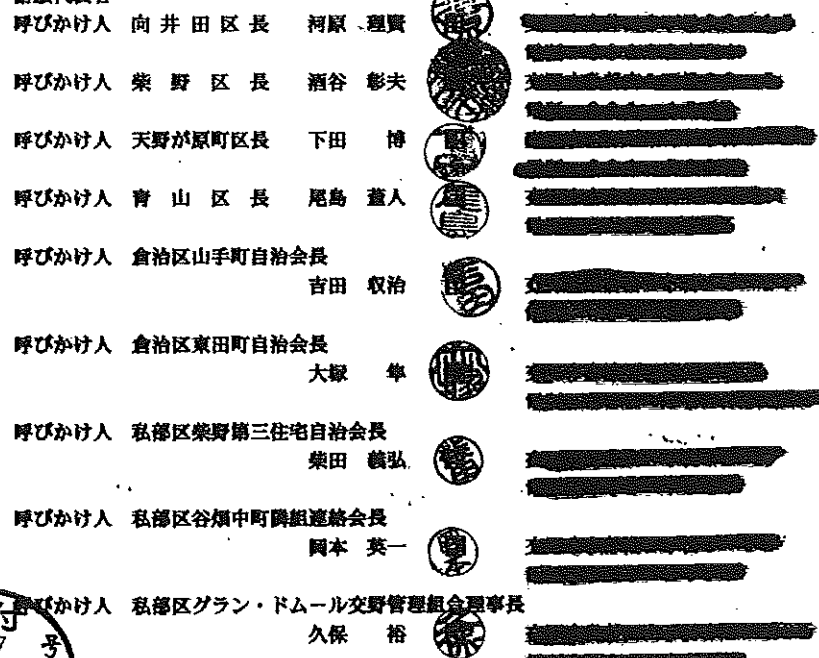 呼びかけ人 向井田区長 河原 理賢
呼びかけ人 柴野区長 酒谷 彰夫
呼びかけ人 天野が原町区長 下田 博
呼びかけ人 青山区長 尾島 董人
呼びかけ人 倉治区山手町自治会長
吉田 収治
呼びかけ人 倉治区東田町自治会長
大塚 隼
呼びかけ人 私部区柴野第三住宅自治会長
柴田 義弘
呼びかけ人 私部区谷畑中町隣組連絡会長
岡本 英一
呼びかけ人 私部区グラン・ドムール交野管理組合理事長
久保 裕
号